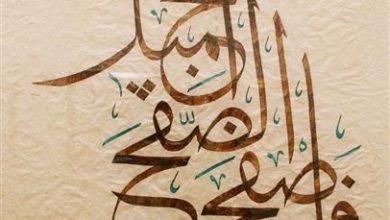 فاصفح
الصفح
الجميل